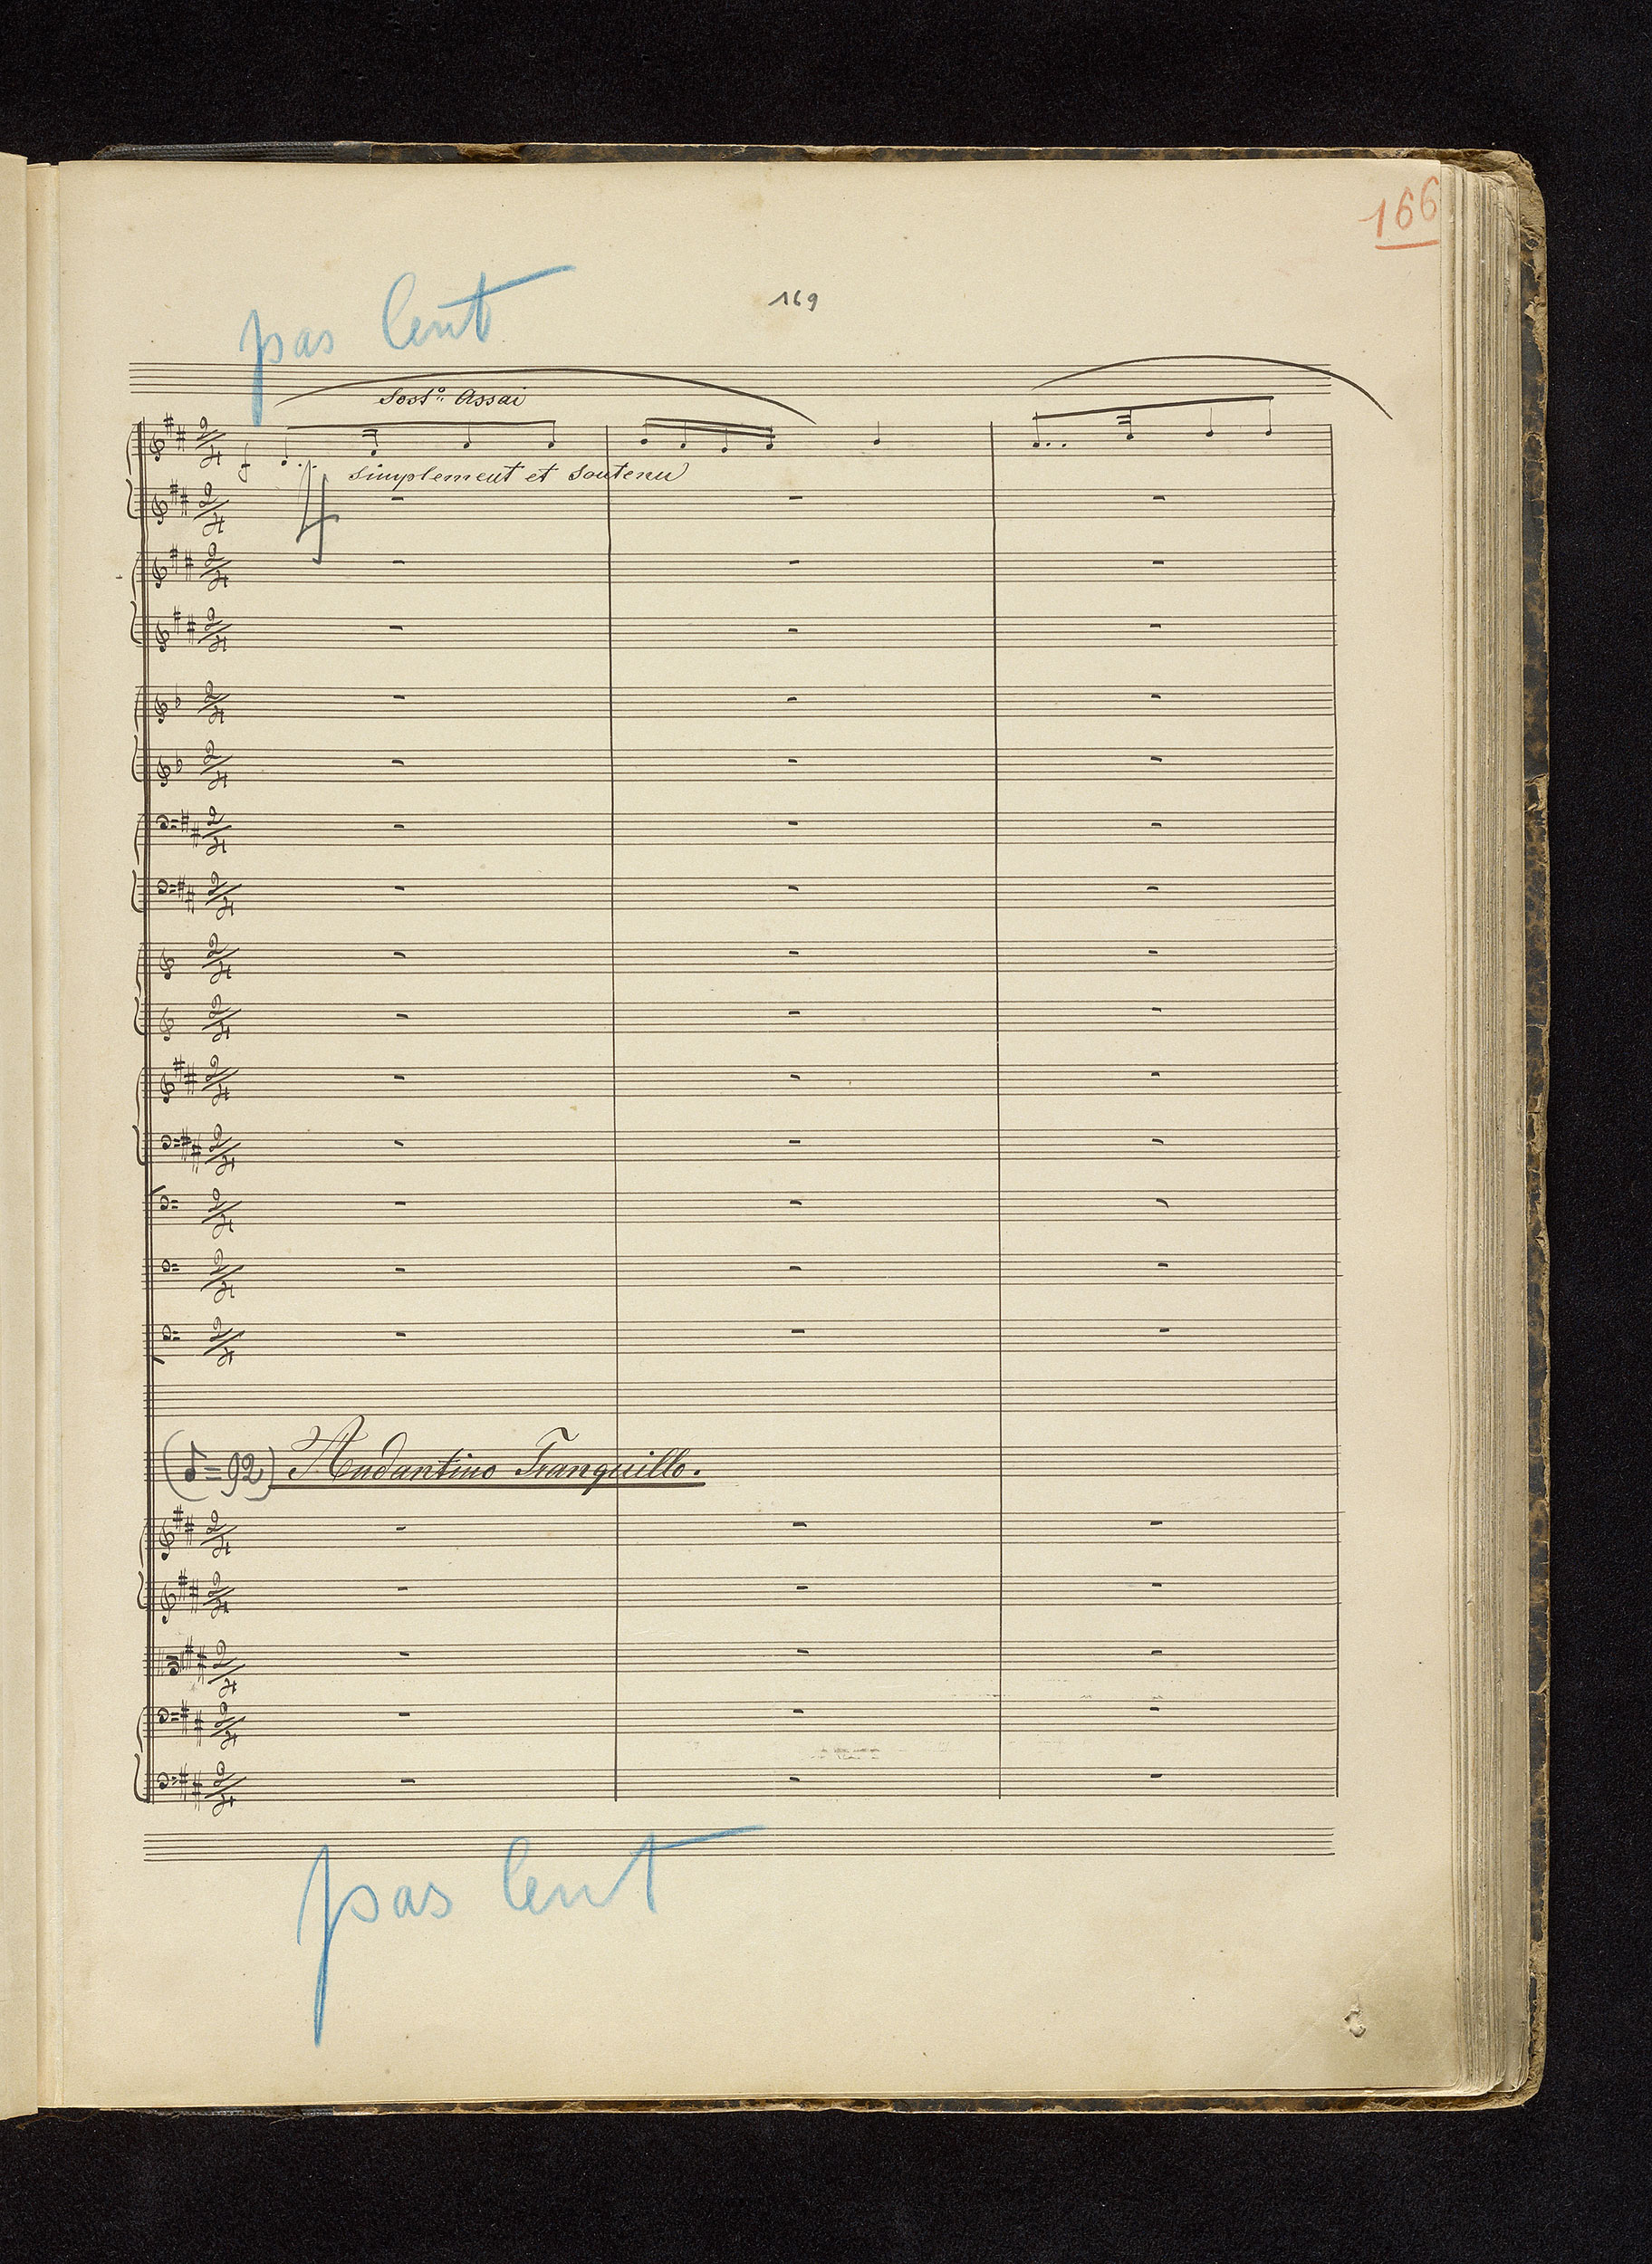 166
169
pas lent
Sost.º Assai
simplement et soutenu
4
(♪=92) Andantino Tranquillo.
pas lent